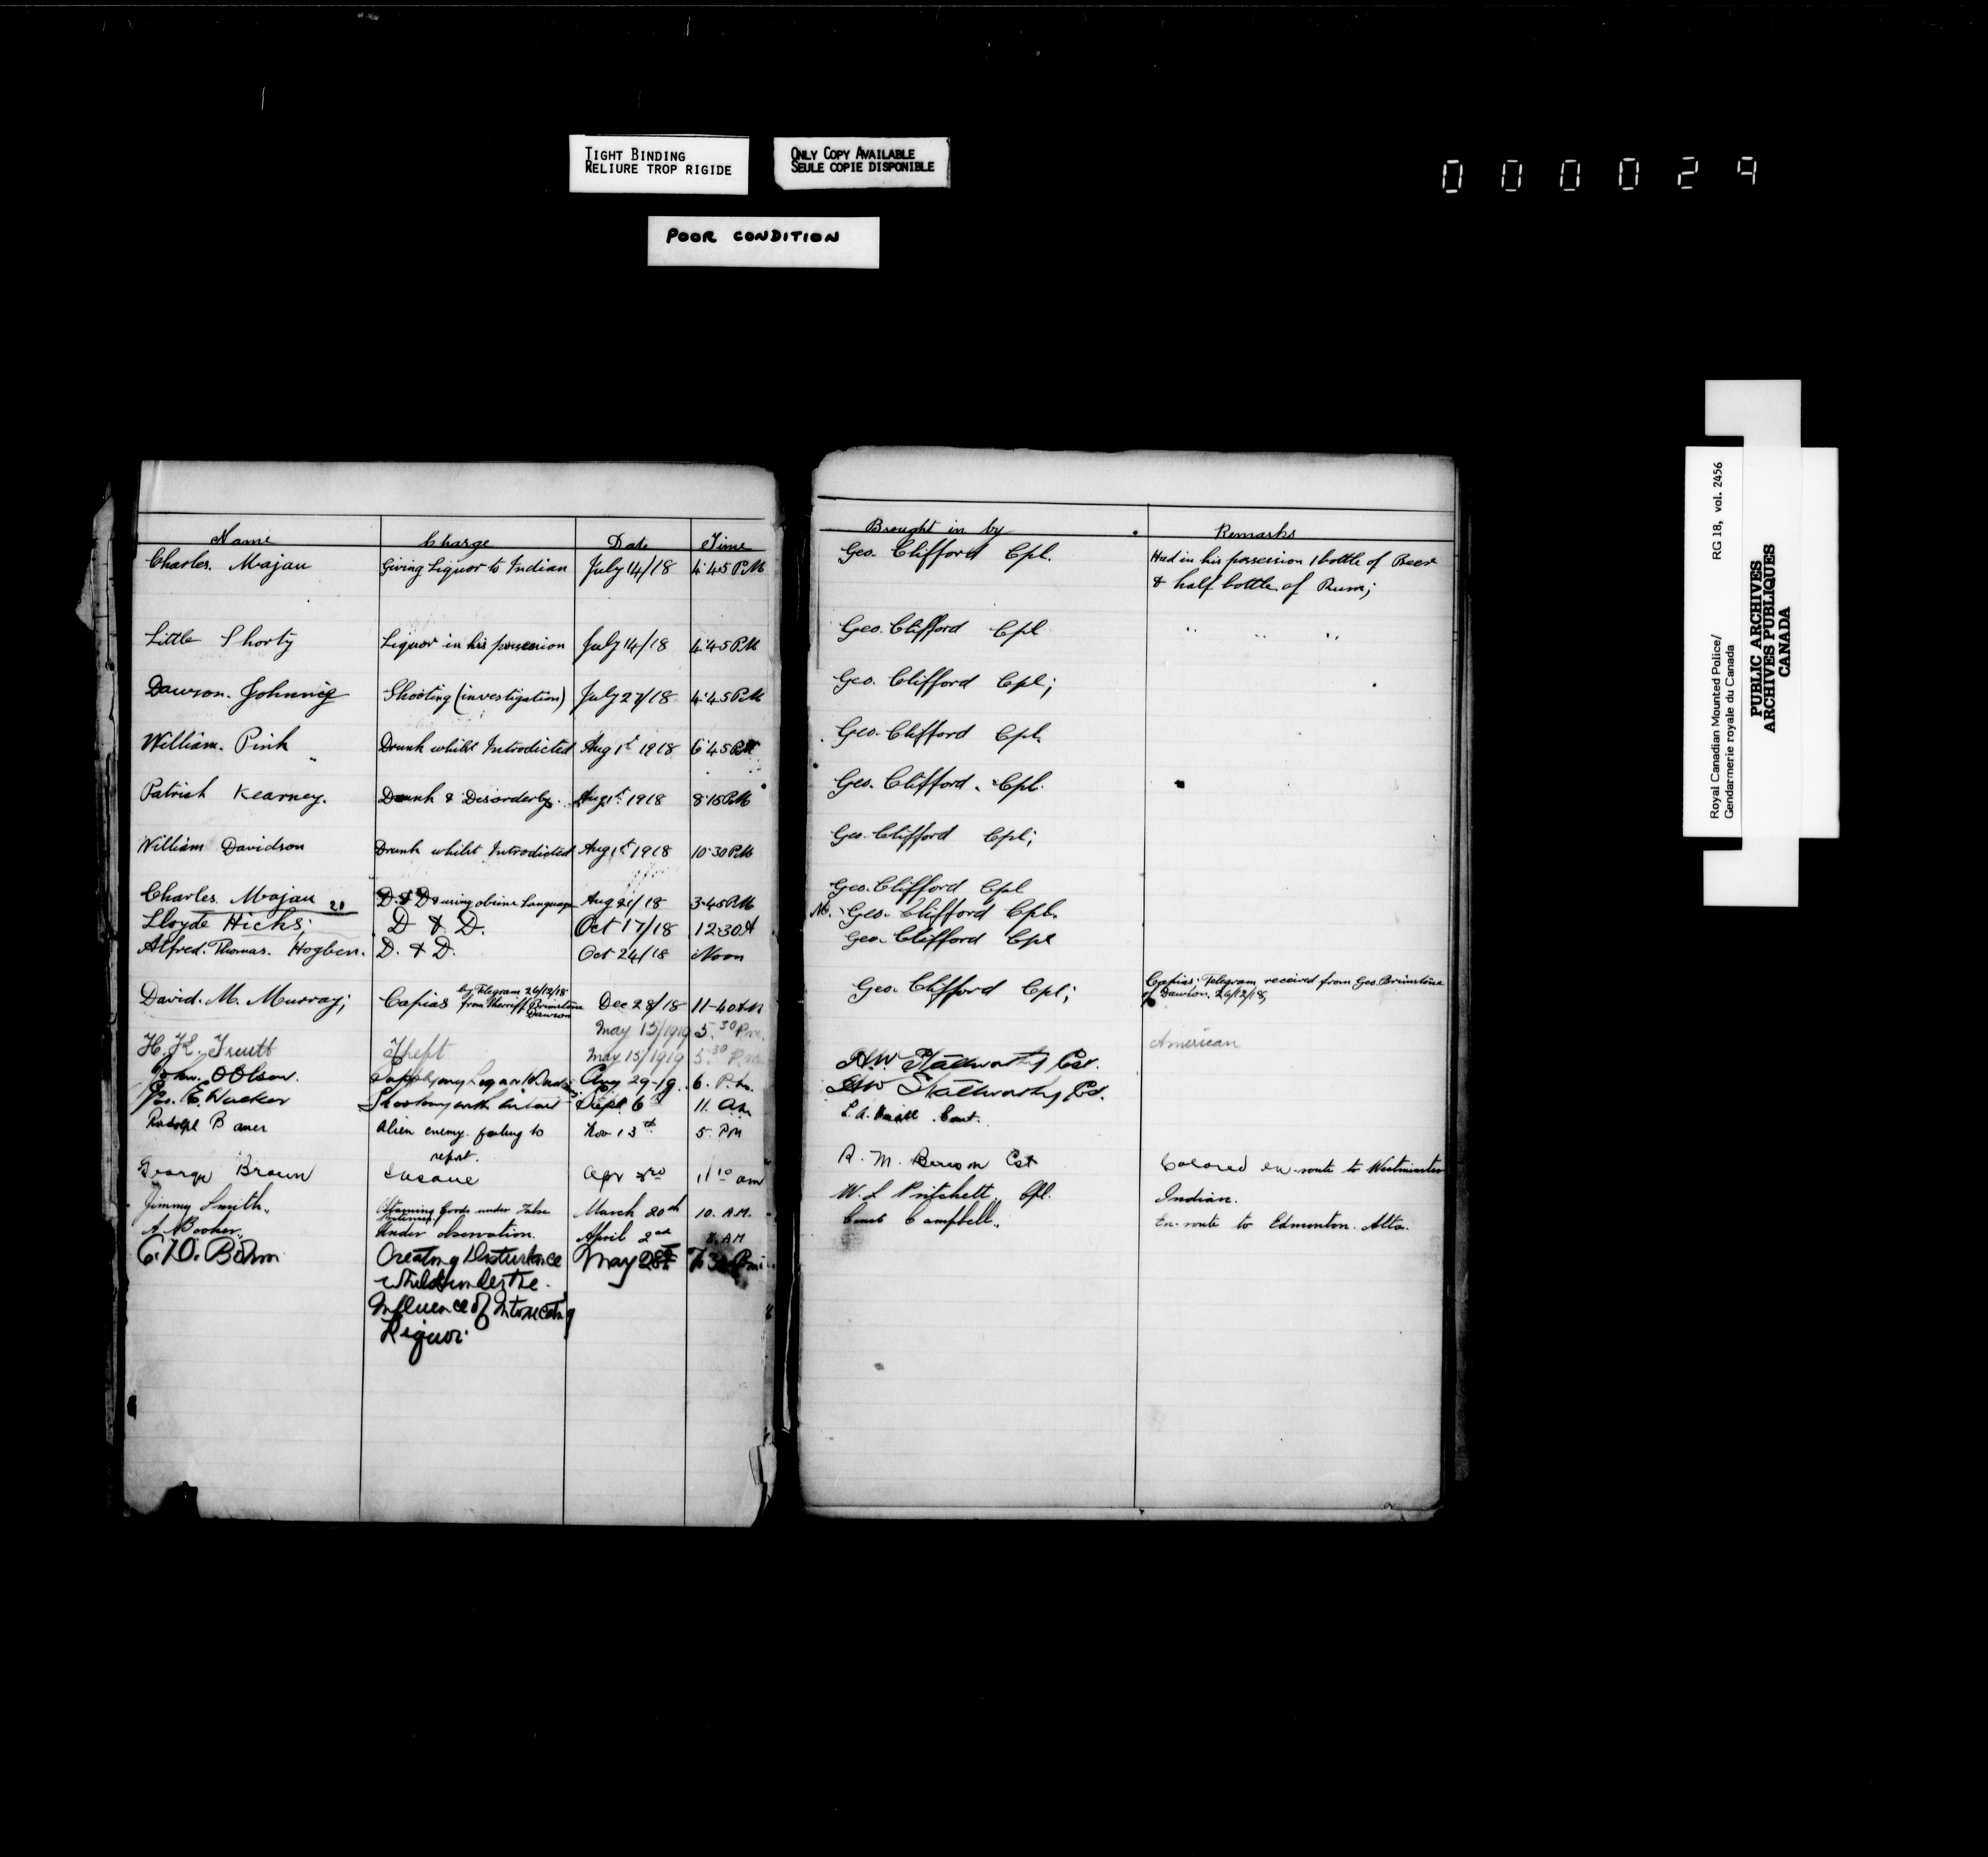 TIGHT BINDING
RELIURE TROP RIGIDE
ONLY COPY AVAILABLE
SEULE COPIE DISPONIBLE
POOR CONDITION
000029
Royal Canadian Mounted Police/ RG 18, vol. 2456
Gendarmerie royale du Canada
PUBLIC ARCHIVES
ARCHIVES PUBLIQUES
CANADA
Name Charge Date Time
Charles. Majau Giving Liquor to Indian July 14/18 4.45 PM
Little Shorty Liquor in his possession July 14/18 4.45 PM
Dawson. Johnnie Shooting (investigation) July 27/18 4.45 PM
William. Pink Drunk whilst Introdicted Aug 1st 1918 6.45 PM
Patrick Kearney. Drunk & Disorderly. Aug 1st 1918 8.15 PM
William Davidson Drunk whilst Introdicted Aug 1st 1918 10.30 PM
Charles. Majau 21 D. & D & using obscene Language Aug 21/18 3.45 PM
Lloyde Hicks; D & D. Oct 17/18 12.30 A
Alfred. Thomas. Hogben. D. & D. Oct 24/18 Noon
David. M. Murray; Capias by Telegram 26/12/18 from Sherriff Brimstone Dawson Dec 28/18 11-40 AM
May 15/1919 5.30 P.m.
H. K. Truitt Theft May 15/1919 5.30 P.m.
John. O Olson. Liquor to Aug 29-19. 6. P.m.
Geo. E. Shooting with intent Sept 6 11. am
Rudolpf Bauer Alien enemy. failing to Nov 13th 5. PM
report.
George Brown Insane Apr 3rd 11.10 am
Jimmy Smith. Obtaining Goods under False Pretences. March 20th 10. A.M.
A. Booker. Under observation. April 2nd 8. AM
C. D. Bohm Creating Disturbance May 28th 7.30 Pm
whilst under the
Influence of Intoxicating
Liquor.
Brought in by Remarks
Geo. Clifford Cpl. Had in his possession 1 bottle of Beer
& half bottle of Rum;
Geo. Clifford Cpl " " "
Geo. Clifford Cpl;
Geo. Clifford Cpl.
Geo. Clifford. Cpl.
Geo. Clifford Cpl;
Geo. Clifford Cpl
Geo. Clifford Cpl.
Geo. Clifford Cpl
Geo. Clifford Cpl; Capias; Telegram received from Geo. Brimstone
of Dawson. 26/12/18;
American
H.W. Stallworthy Cst.
HW Stallworthy Cst.
L. A. Const.
R. M. Cst Colored en-route to Westminster
W. L Pritchett. Cpl. Indian.
Const Campbell. En-route to Edmonton. Alta.